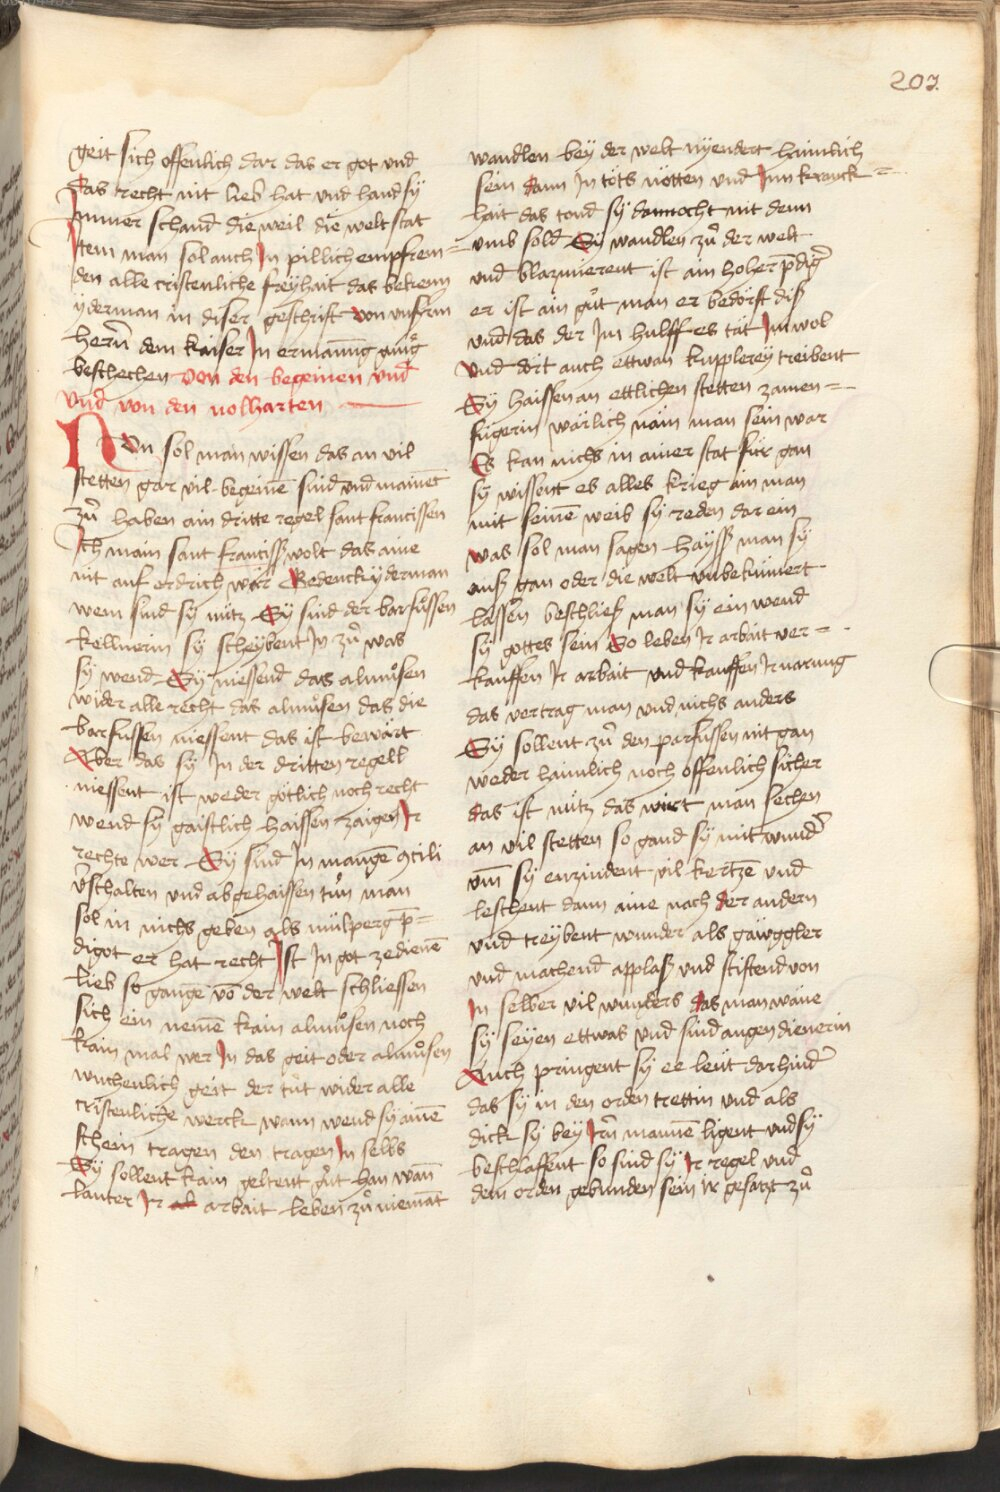 207.
geit sich offenlich dar das er got und
das recht nit lieb hat und hand sy
Immer schand die weil die welt stat
Item man sol auch In pillich empfrem=
den alle cristenliche freyhait das bekenn
yderman in diser geschrift von unsrm
herñ dem kaiser In ermanũg
beschechen von den begeinen und
und von den nolharten
NUn sol man wissen das an vil
stetten gar vil begeinē sind und mainēt
zů haben ain dritte regel sant francissen
Ich main sant franciss wolt das aine
nit auf erdrich wär Gedenck yderman
wem sind sy nütz Sy sind der barfůssen
kellnerin sy schybent In zů was
sy wend Sy niessend das almůsen
wider alle recht das almůsen das die
barfussen niessent das ist bewärt
Aber das sy In der dritten regell
niessent ist weder götlich noch recht
wend sy gaistlich haissen zaigen Ir
rechte wer Sy sind In mangē 9cili
v̄schalten und abgehaissen tůn man
sol in nichs geben als mülperg p̄=
digot er hat recht Ist In got zedienē
lieb so gangē vō der welt schliessen
sich ein nemē kain almůsen noch
kain mal wer In das geit oder almůsen
wuchenlich geit der tůt wider alle
cristenliche werck wann wend sy ainē
schein tragen den tragen In selbs
Sy sollent kain geltent gůt han wañ
lauter Ir ab arbait leben zů niemāt
wandlen bey der welt nyendert haimlich
sein dann In tots nötten und Inn kranck=
hait das tond sy dannocht nit denn
umb sold Sy wandlen zů der welt
und blazimerent ist ain hoher p̄dig̃
er ist ain gůt man er bedörft diß
und das der Im hulff es tät Im wol
und dört auch ettwan kupplerey treibent
Sy haissen an ettlichen stetten zamen=
fügerin wärlich nain man sein war
Es kan nichs in ainer stat für gan
sy wissent es alles krieg ain man
mit seinē weib sy reden dar ein
was sol man sagen hayss man sy
auß gan oder die welt unbekümert
lassen beschließ man sy ein wend
sy gottes sein So leben Ir arbait ver=
kauffen Ir arbait und kauffen Ir narung
das vertrag man und nichs anders
Sy sollent zů den parfussen nit gan
weder haimlich noch offenlich sicher
das ist nütz das wirt man sechen
an vil stetten so gand sy mit wund̃
um̄ sy enzindent vil kertzē und
leschent dann aine nach der andern
und treybent wunder als gäuggler
und machend applaß und stiftend von
In selber vil wunders das man wäne
sy seyen ettwas und sind augendienerin
Auch pringent sy ee leüt darhind̃
das sy in den orden trettin und als
dick sy bey Irñ mannē ligent und sy
beschlaffent so sind sy Ir regel und
dem orden gebunden sein Ir gesatzt zů